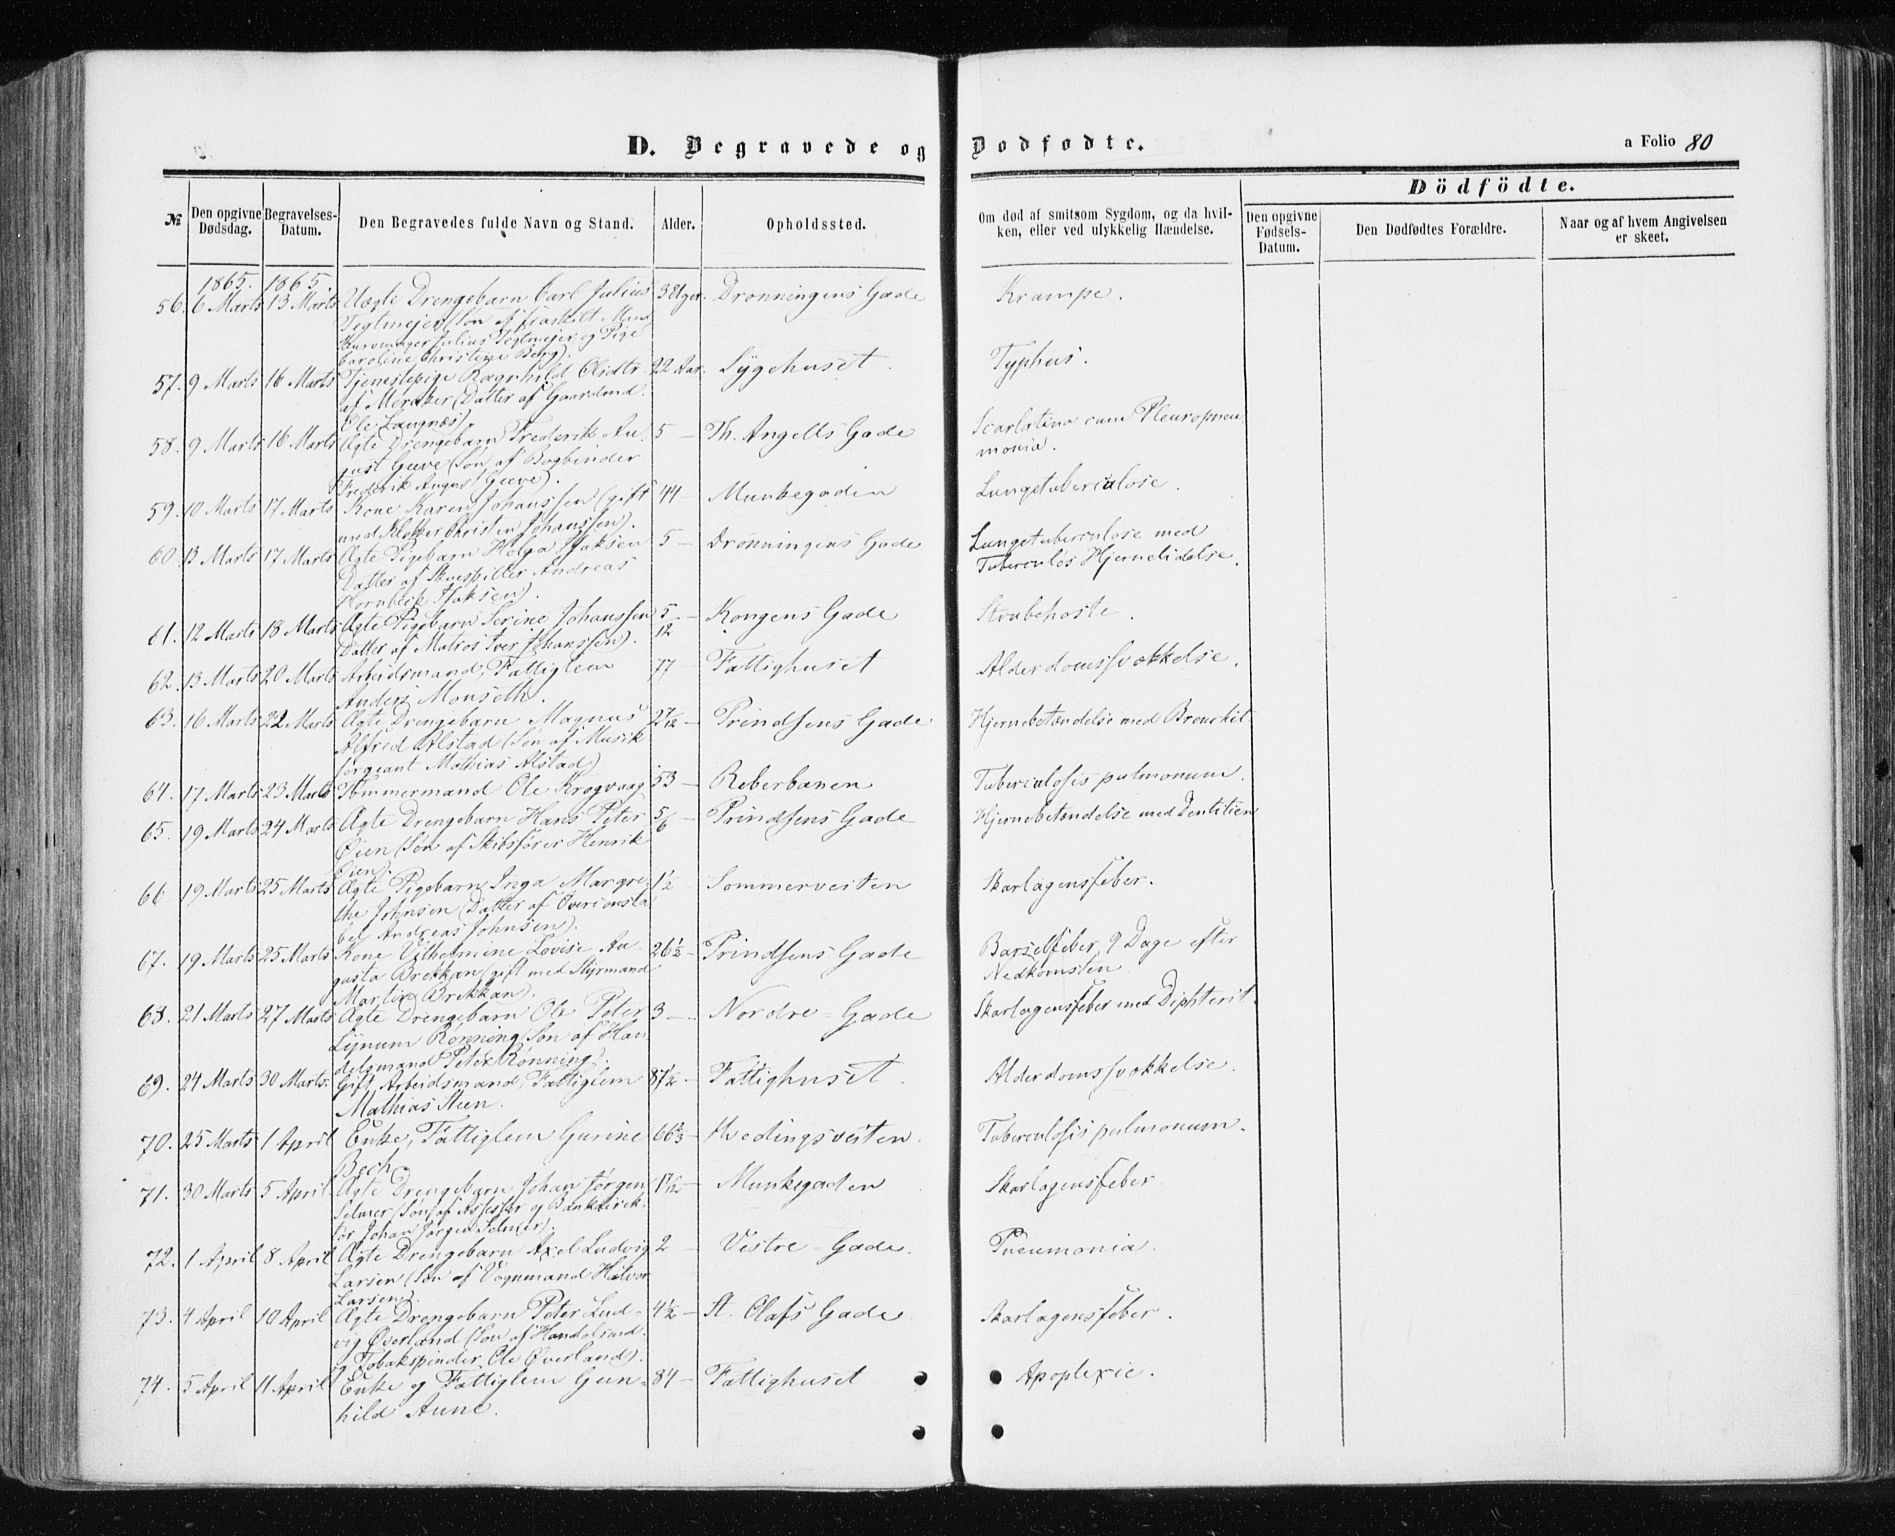 D. Begravede og Dødfødte.
a Folio 80
№
Den opgivne Dødsdag.
Begravelses-Datum.
Den Begravedes fulde Navn og Stand.
Alder.
Opholdssted.
Om død af smitsom Sygdom, og da hvil-
ken, eller ved ulykkelig Hændelse.
Dödfödte.
Den opgivne Fødsels-Datum.
Den Dødfødtes Forældre.
Naar og af hvem Angivelsen er skeet.
1865. 1865.
56. 6 Marts 13 Marts Uægte Drengebarn Carl Julius 3 Uger. Dronningens Gade Krampe.
Tegtmejer (Søn af fraskilt
Julius Tegtmejer og Pige
Caroline Christine Berg).
57. 9 Marts 16 Marts Tjenestepige Ragnhild Olsdtr 22 Aar. Sygehuset. Typhus.
af Meraker (Datter af Gaardmd.
Ole Langnæs).
58. 9 Marts 16 Marts Ægte Drengebarn Frederik Au- 5 — Th. Angells Gade Scarlatina cum Pleuropneu
gust Greve (Søn af Bogbinder monia.
Frederik August Greve).
59. 10 Marts 17 Marts Kone Karen Johanssen (gift 44 — Munkegaden Lungetuberculose.
med Christen Johanssen).
60. 13 Marts 17 Marts Ægte Pigebarn Helga Isaksen 5 — Dronningens Gade Lungetuberculose med
Datter af Skuespiller Andreas Tuberculøs Hjernelidelse.
Hornbech Isaksen).
61. 12 Marts 18 Marts Ægte Pigebarn Serine Johanssen 5/12 — Kongens Gade Strubehoste.
(Datter af Matros Iver Johanssen).
62. 13 Marts 20 Marts Arbeidsmand, Fattiglem 77 — Fattighuset Alderdomssvækkelse.
Anders Monseth.
63. 16 Marts 22 Marts Ægte Drengebarn Magnus 2 7/12 — Prindsens Gade Hjernebetændelse med Bronchit
Alfred Alstad (Søn af Musik
sergeant Mathias Alstad)
64. 17 Marts 23 Marts Tømmermand Ole Krogvaag 53 — Reberbanen Tuberculosis pulmonum.
65. 19 Marts 24 Marts Ægte Drengebarn Hans Peter 5/6 — Prindsens Gade Hjernebetændelse med Dentition
Øien (Søn af Skibsfører Henrik
Øien).
66. 19 Marts 25 Marts Ægte Pigebarn Inga Margre- 1 1/2 Sommervesten Skarlagensfeber.
the Johnsen (Datter af Overconsta
bel Andreas Johnsen).
67. 19 Marts 25 Marts Kone Vilhelmine Lovise Au- 26 1/2 — Prindsens Gade Barselfeber, 9 Dage efter
gusta Brekkan (gift med Styrmand Nedkomsten
Martin Brekkan).
68. 21 Marts 27 Marts Ægte Drengebarn Ole Peter 3 — Nordre Gade Skarlagensfeber med Diphterit.
Lynum Rønning (Søn af Han
delsmand Peter Rønning).
69. 24 Marts 30 Marts. Gift Arbeidsmand, Fattiglem 87 1/2 — Fattighuset. Alderdomssvækkelse.
Mathias Steen.
70. 25 Marts 1 April Enke, Fattiglem Gurine 66 2/3 — Hvedingsvesten. Tuberculosis pulmonum.
Bech
71. 30 Marts 5 April Ægte Drengebarn Johan Jørgen — Munkegaden Skarlagensfeber
Selmer (Søn af Assessor og Bankdirek-
tør Johan Jørgen Selmer).
72. 1 April 8 April Ægte Drengebarn Axel Ludvig 2 — Vestre Gade. Pneumonia.
Larsen (Søn af Vognmand Halvor
Larsen).
73. 4 April 10 April Ægte Drengebarn Peter Lud- 4 1/2 — St. Olafs Gade Skarlagensfeber.
vig Øverland (Søn af Handelsmd.
og Tobakspinder Ole Øverland).
74. 5 April 11 April Enke og Fattiglem Gun- 84 — Fattighuset Apoplexie.
hild Aune.